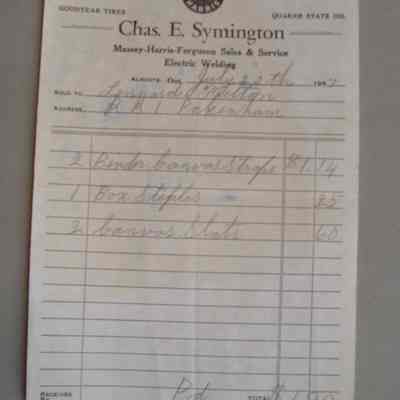 GOODYEAR TIRES QUAKER STATE OIL
HARRIS
Chas. E. Symington
Massey-Harris-Ferguson Sales & Service
Electric Welding
ALMONTE, Ont., July 22th 19
SOLD TO
ADDRESS R R 1 Pakenham
2 Binder Canvas Straps $1.14
1 Box Staples .25
2 Canvas Slats .60
RECEIVED BY Pd TOTAL $1.